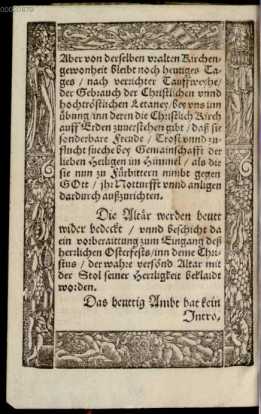 Aber von derselben vralten Kirchen-
gewonheit bleibt noch heutiges Ta-
ges / nach verrichter Tauffweyhe /
der Gebrauch der Christlichen vnnd
hochtröstlichen Letaney / bey vns inn
übung / inn deren die Christlich Kirch
auff Erden zuuerstehen gibt / daß sie
sonderbare Freude / Trost vnnd zu-
flucht sueche bey Gemainschafft der
lieben Heiligen im Himmel / als die
sie nun zu Fürbittern nimbt gegen
GOtt / ihr Notturfft vnnd anligen
dardurch außzurichten.
Die Altär werden heutt
wider bedeckt / vnnd beschicht da
ein vorberaittung zum Eingang deß
herrlichen Osterfests / inn deme Chri-
stus / der wahre versönd Altar mit
der Stol seiner Herrligkeit beklaidt
worden.
Das heuttig Ambt hat kein
Intro,